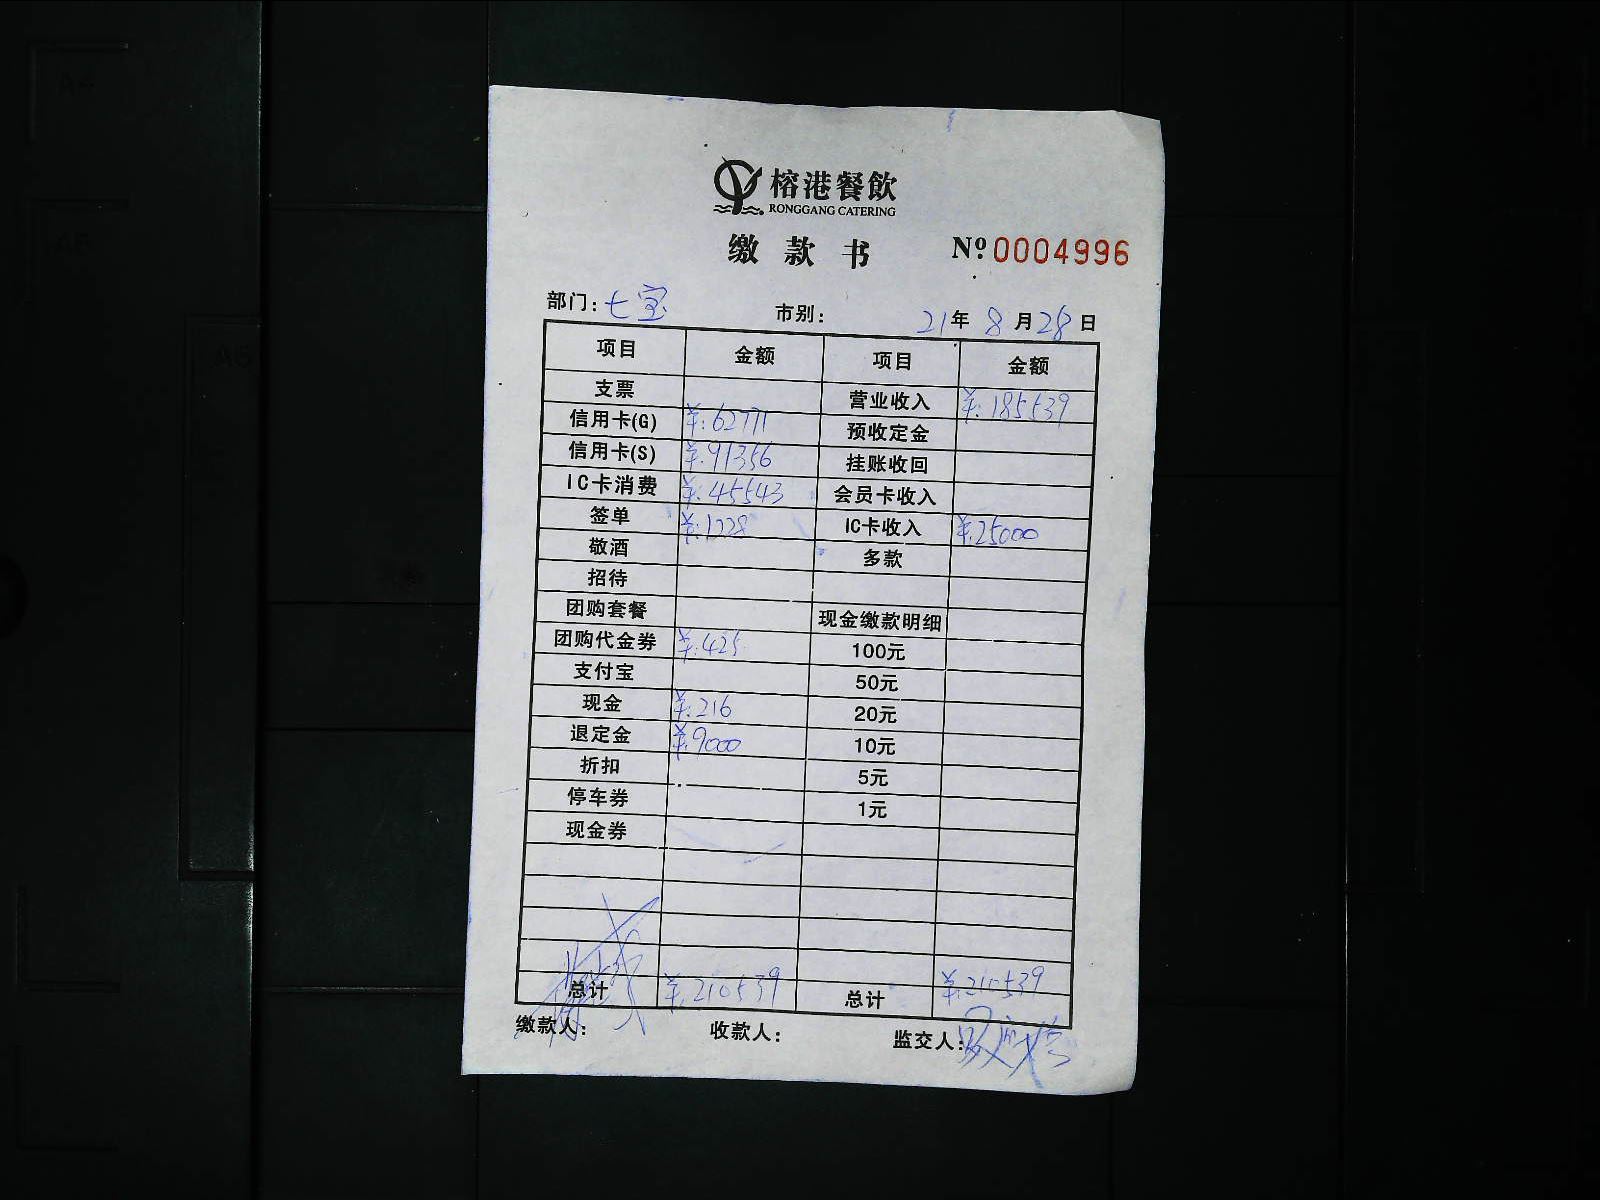 榕港餐飲
RONGGANG CATERING
缴款书 Nº:0004996
部门:七宝 市别: 21年8月28日
项目 金额 项目 金额
支票 营业收入 ¥:185539
信用卡(G) ¥:62771 预收定金
信用卡(S) ¥:91356 挂账收回
IC卡消费 ¥:45543 会员卡收入
签单 ¥:1228 IC卡收入 ¥:25000
敬酒 多款
招待
团购套餐 现金缴款明细
团购代金券 ¥:425 100元
支付宝 50元
现金 ¥:216 20元
退定金 ¥:9000 10元
折扣 5元
停车券 1元
现金券
总计 ¥:210539 总计 ¥:210539
缴款人: 收款人: 监交人: